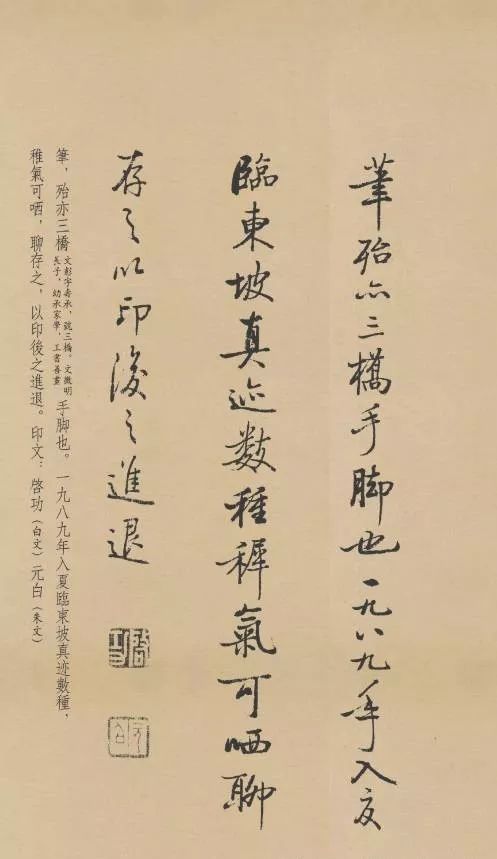 筆殆亦三橋手脚也一九八九年入夏
臨東坡真迹数種稺氣可哂聊
存之以印後之進退
啓功
元白
筆，殆亦三橋文彭字壽承，號三橋。文徵明長子，幼承家學，工書善畫手脚也。一九八九年入夏臨東坡真迹數種，
稚氣可哂，聊存之，以印後之進退。印文：啓功（白文）元白（朱文）